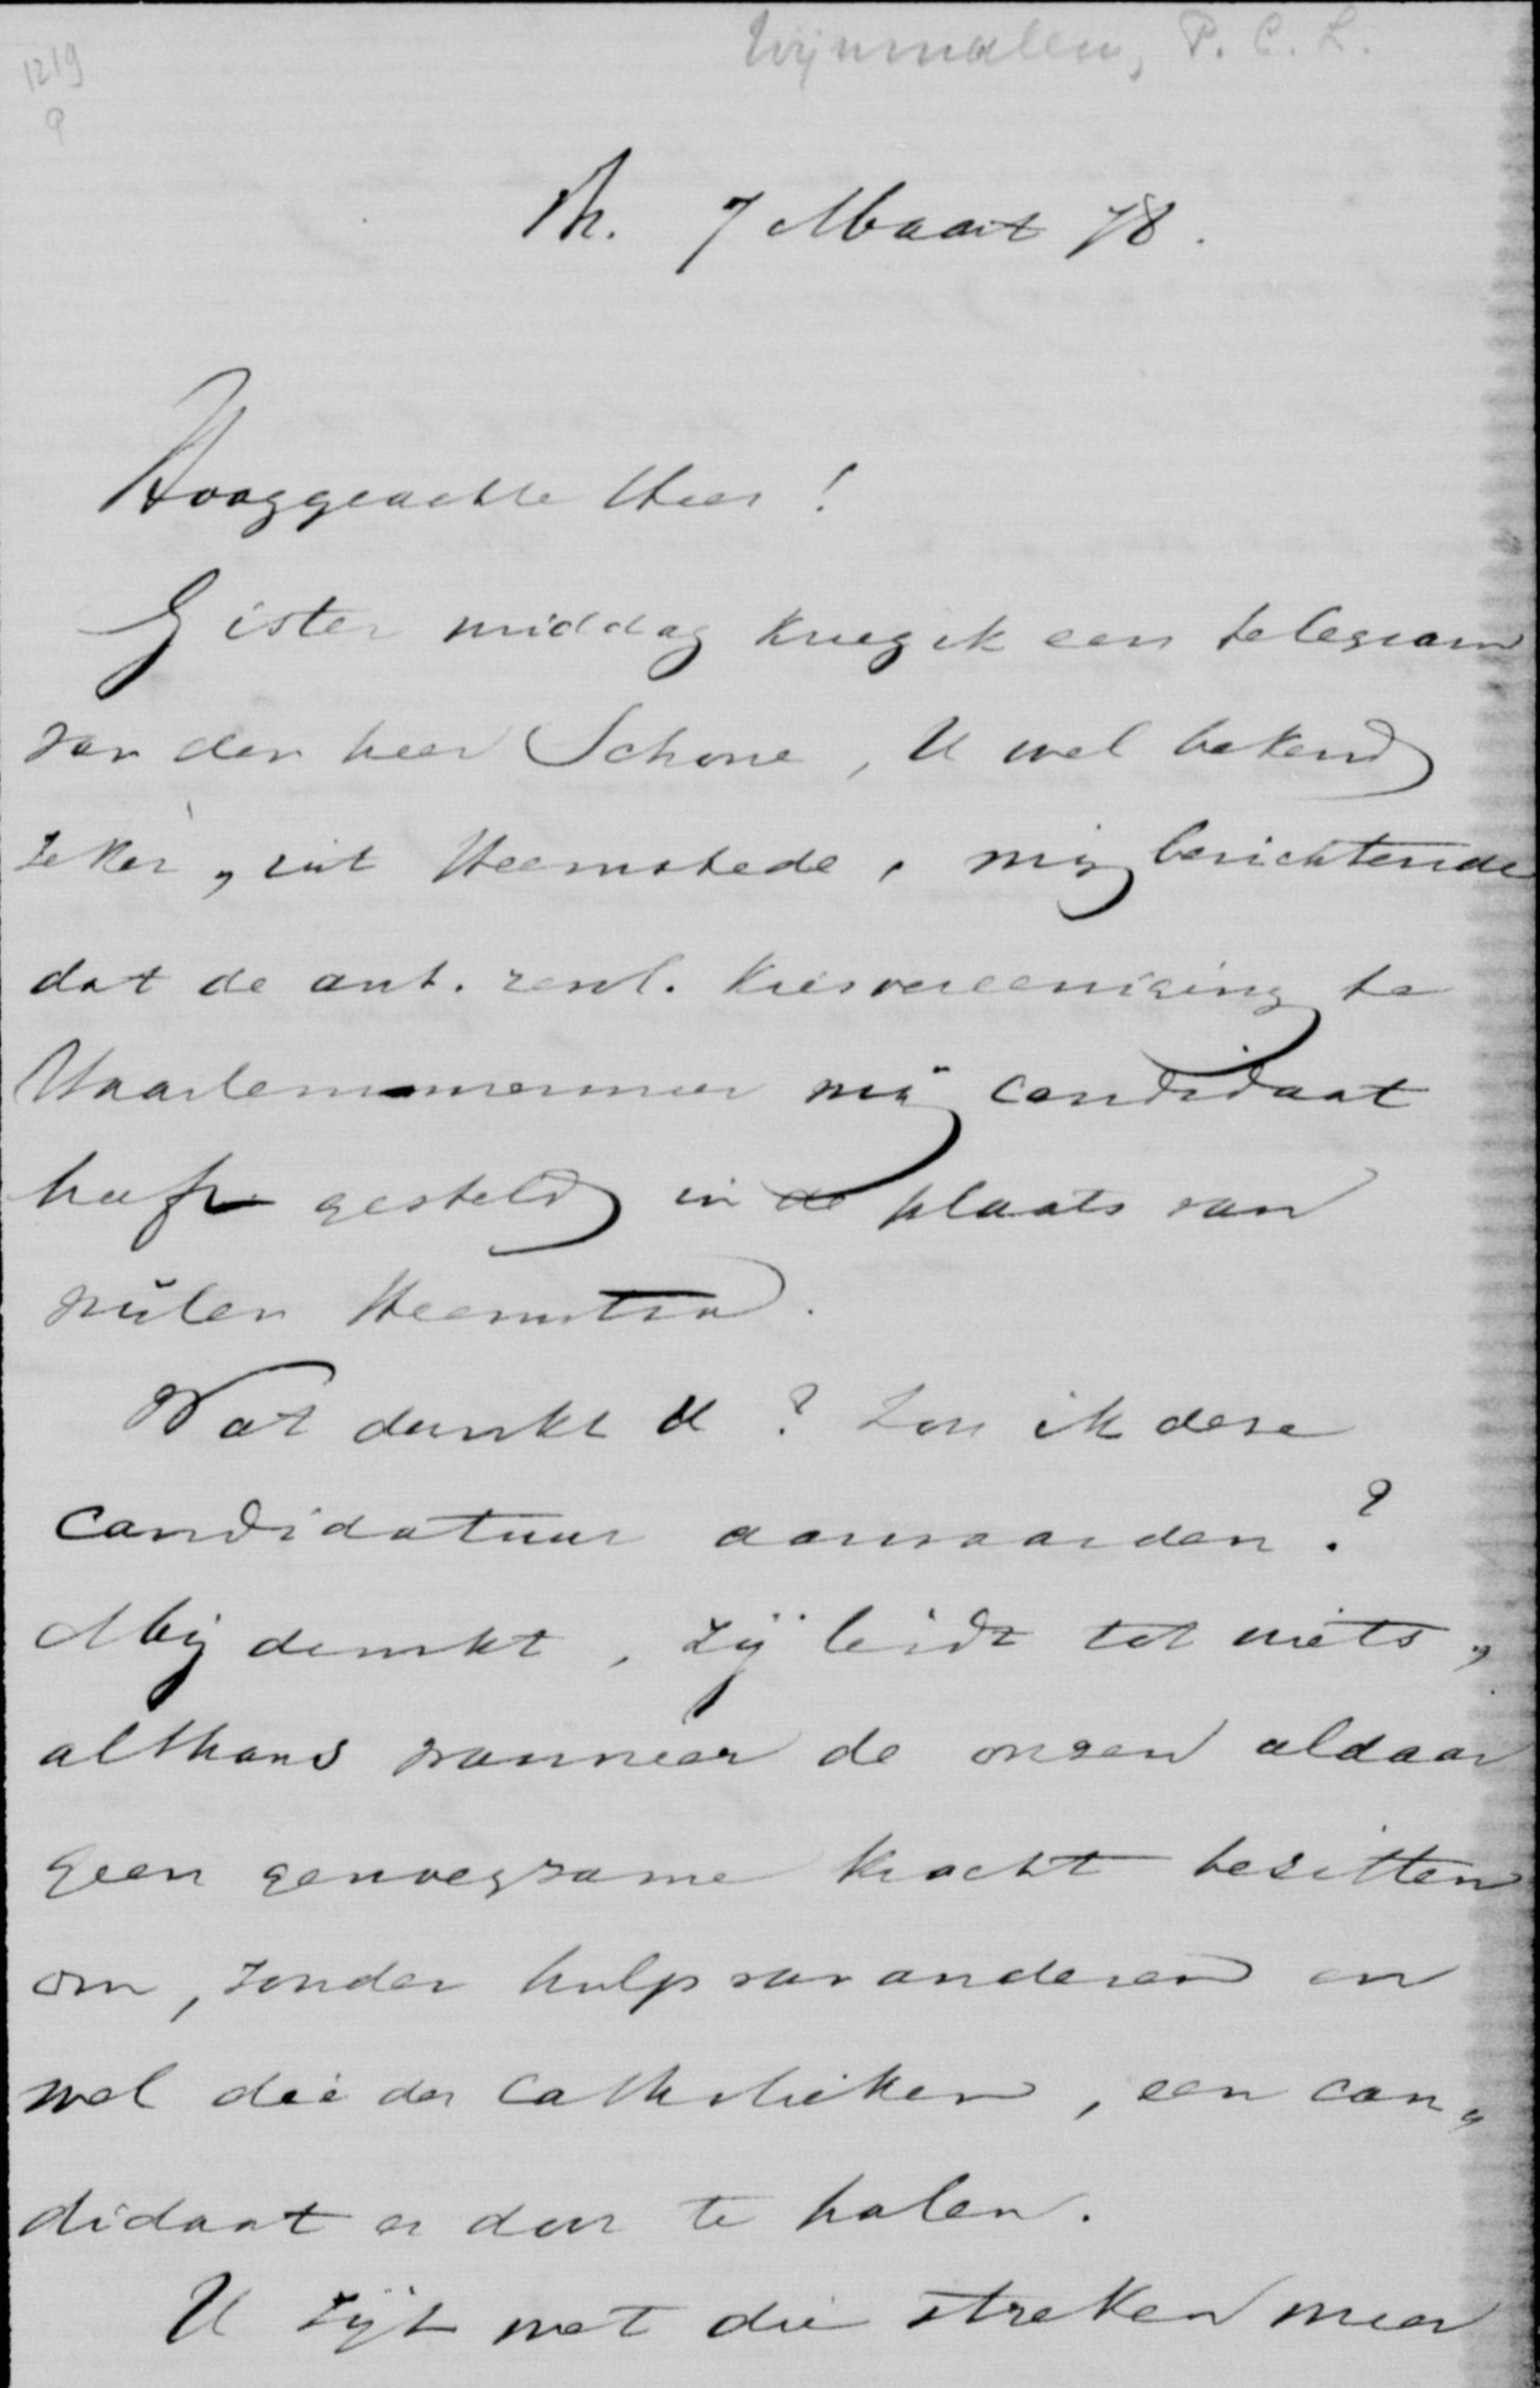 Wijnmalen, P. C. L.
1219
9
Th. 7 Maart 78.
Hooggeachte Heer!
Gister middag kreeg ik een telegram
van den heer Schone, U wel bekend
zeker, uit Heemstede, mij berichtende
dat de ant. revol. kiesvereeniging te
Haarlemmermeer mij candidaat
heeft gesteld in de plaats van
wijlen Heemstra.
Wat dunkt U? Zou ik deze
candidatuur aanvaarden?
Mij dunkt, zij leidt tot niets,
althans wanneer de onzen aldaar
geen genoegzame kracht bezitten
om, zonder hulp van anderen en
wel die der Catholieken, een can„
didaat er door te halen.
U zijt met die streken meer